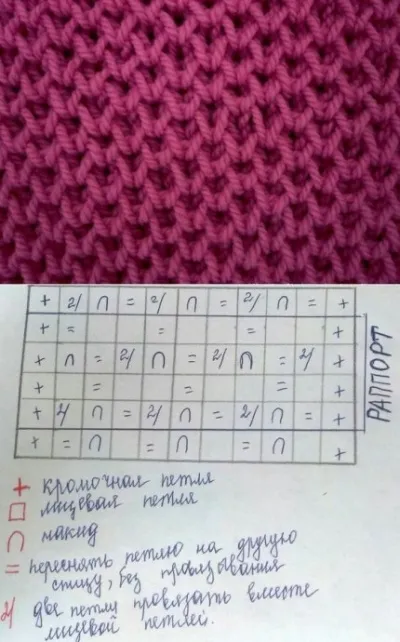 + 2/ ∩ = 2/ ∩ = 2/ ∩ = +
+ = = = +
+ ∩ = 2/ ∩ = 2/ ∩ = 2/ +
+ = = = +
+ 2/ ∩ = 2/ ∩ = 2/ ∩ = +
+ = ∩ = ∩ = ∩ +
РАППОРТ
+ кромочная петля
□ лицевая петля
∩ накид
= переснять петлю на другую
спицу, без провязывания
2/ две петли провязать вместе
лицевой петлей.